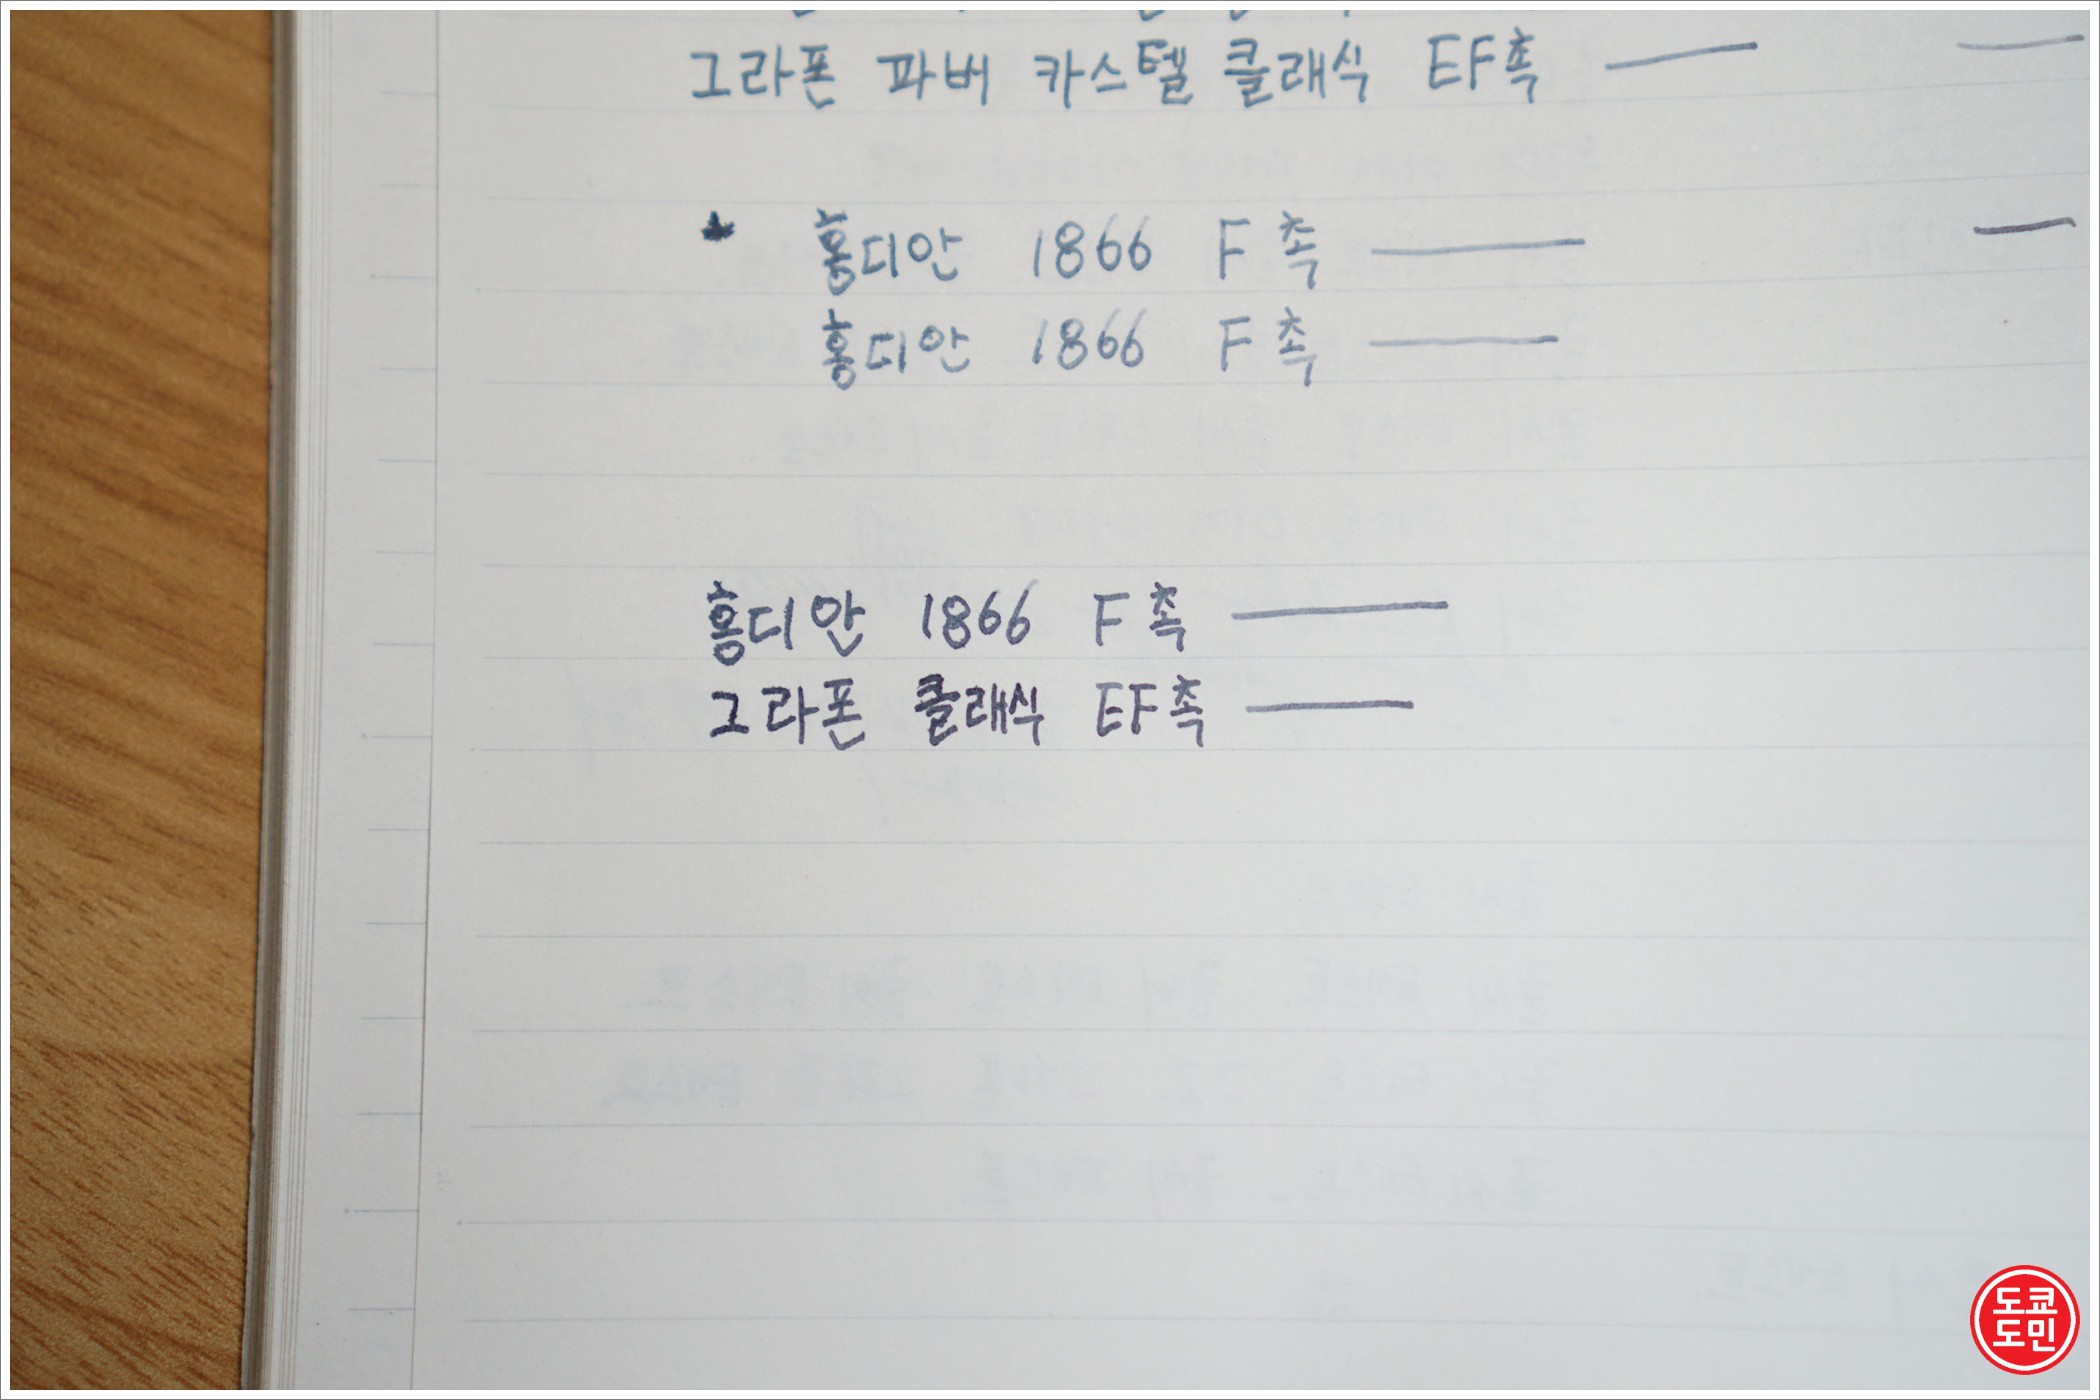 그라폰 파버 카스텔 클래식 EF촉
홍디안 1866 F촉
홍디안 1866 F촉
홍디안 1866 F촉
그라폰 클래식 EF촉
도쿄
도민